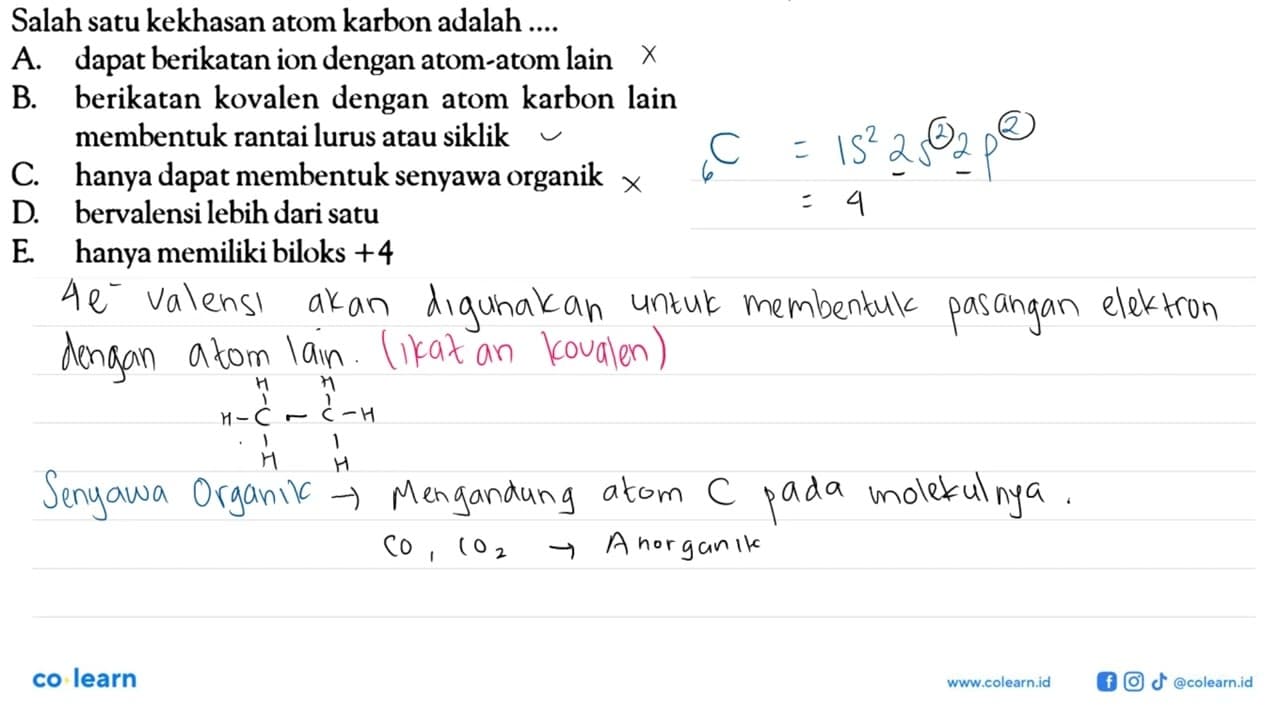 Salah satu kekhasan atom karbon adalah ....
A. dapat berikatan ion dengan atom-atom lain ×
B. berikatan kovalen dengan atom karbon lain
membentuk rantai lurus atau siklik ✓
C. hanya dapat membentuk senyawa organik ×
D. bervalensi lebih dari satu
E. hanya memiliki biloks +4
₆C = 1s² 2s² 2p²
= 4
4e⁻ valensi akan digunakan untuk membentuk pasangan elektron
dengan atom lain. (ikatan kovalen)
H H
H-C-C-H
H H
Senyawa Organik → Mengandung atom C pada molekulnya.
CO, CO₂ → Anorganik
co learn
www.colearn.id
@colearn.id